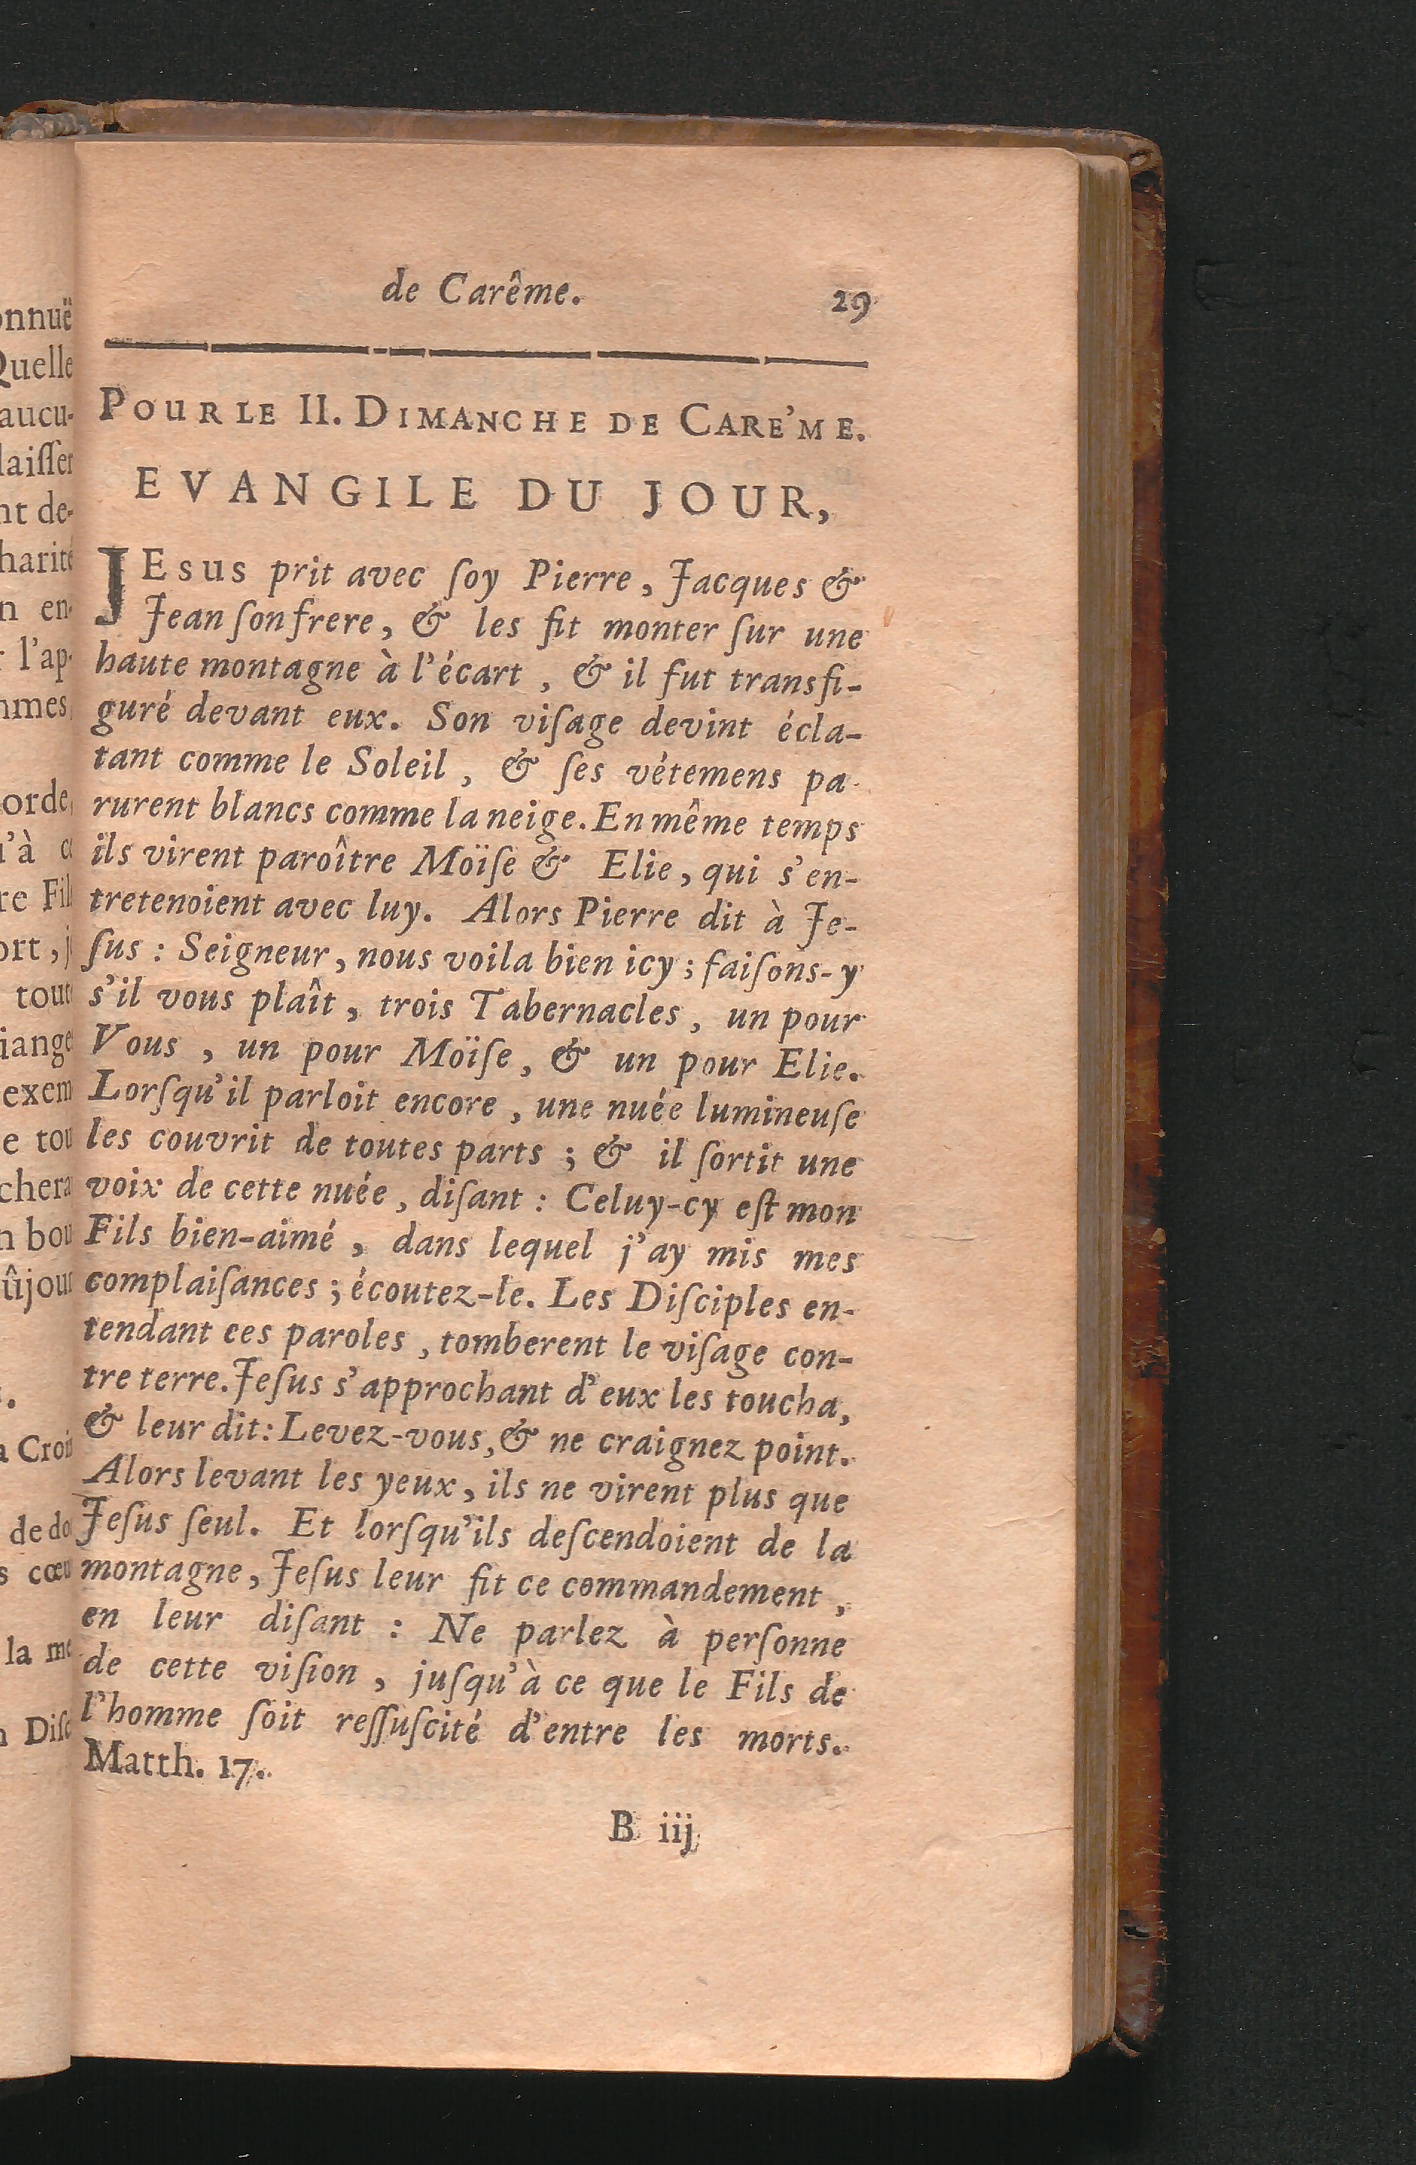 de Carême. 29
POUR LE II. DIMANCHE DE CARE'ME.
EVANGILE DU JOUR,
JEsus prit avec ſoy Pierre, Jacques &
Jean ſon frere, & les fit monter ſur une
haute montagne à l'écart, & il fut transfi-
guré devant eux. Son viſage devint écla-
tant comme le Soleil, & ſes vétemens pa-
rurent blancs comme la neige. En même temps
ils virent paroître Moïſe & Elie, qui s'en-
tretenoient avec luy. Alors Pierre dit à Je-
ſus : Seigneur, nous voila bien icy ; faiſons-y
s'il vous plaît, trois Tabernacles, un pour
Vous, un pour Moïſe, & un pour Elie.
Lorſqu'il parloit encore, une nuée lumineuſe
les couvrit de toutes parts ; & il ſortit une
voix de cette nuée, diſant : Celuy-cy eſt mon
Fils bien-aimé, dans lequel j'ay mis mes
complaiſances ; écoutez-le. Les Diſciples en-
tendant ces paroles, tomberent le viſage con-
tre terre. Jeſus s'approchant d'eux les toucha,
& leur dit : Levez-vous, & ne craignez point.
Alors levant les yeux, ils ne virent plus que
Jeſus ſeul. Et lorſqu'ils deſcendoient de la
montagne, Jeſus leur fit ce commandement,
en leur diſant : Ne parlez à perſonne
de cette viſion, juſqu'à ce que le Fils de
l'homme ſoit reſſuſcité d'entre les morts.
Matth. 17.
B iij